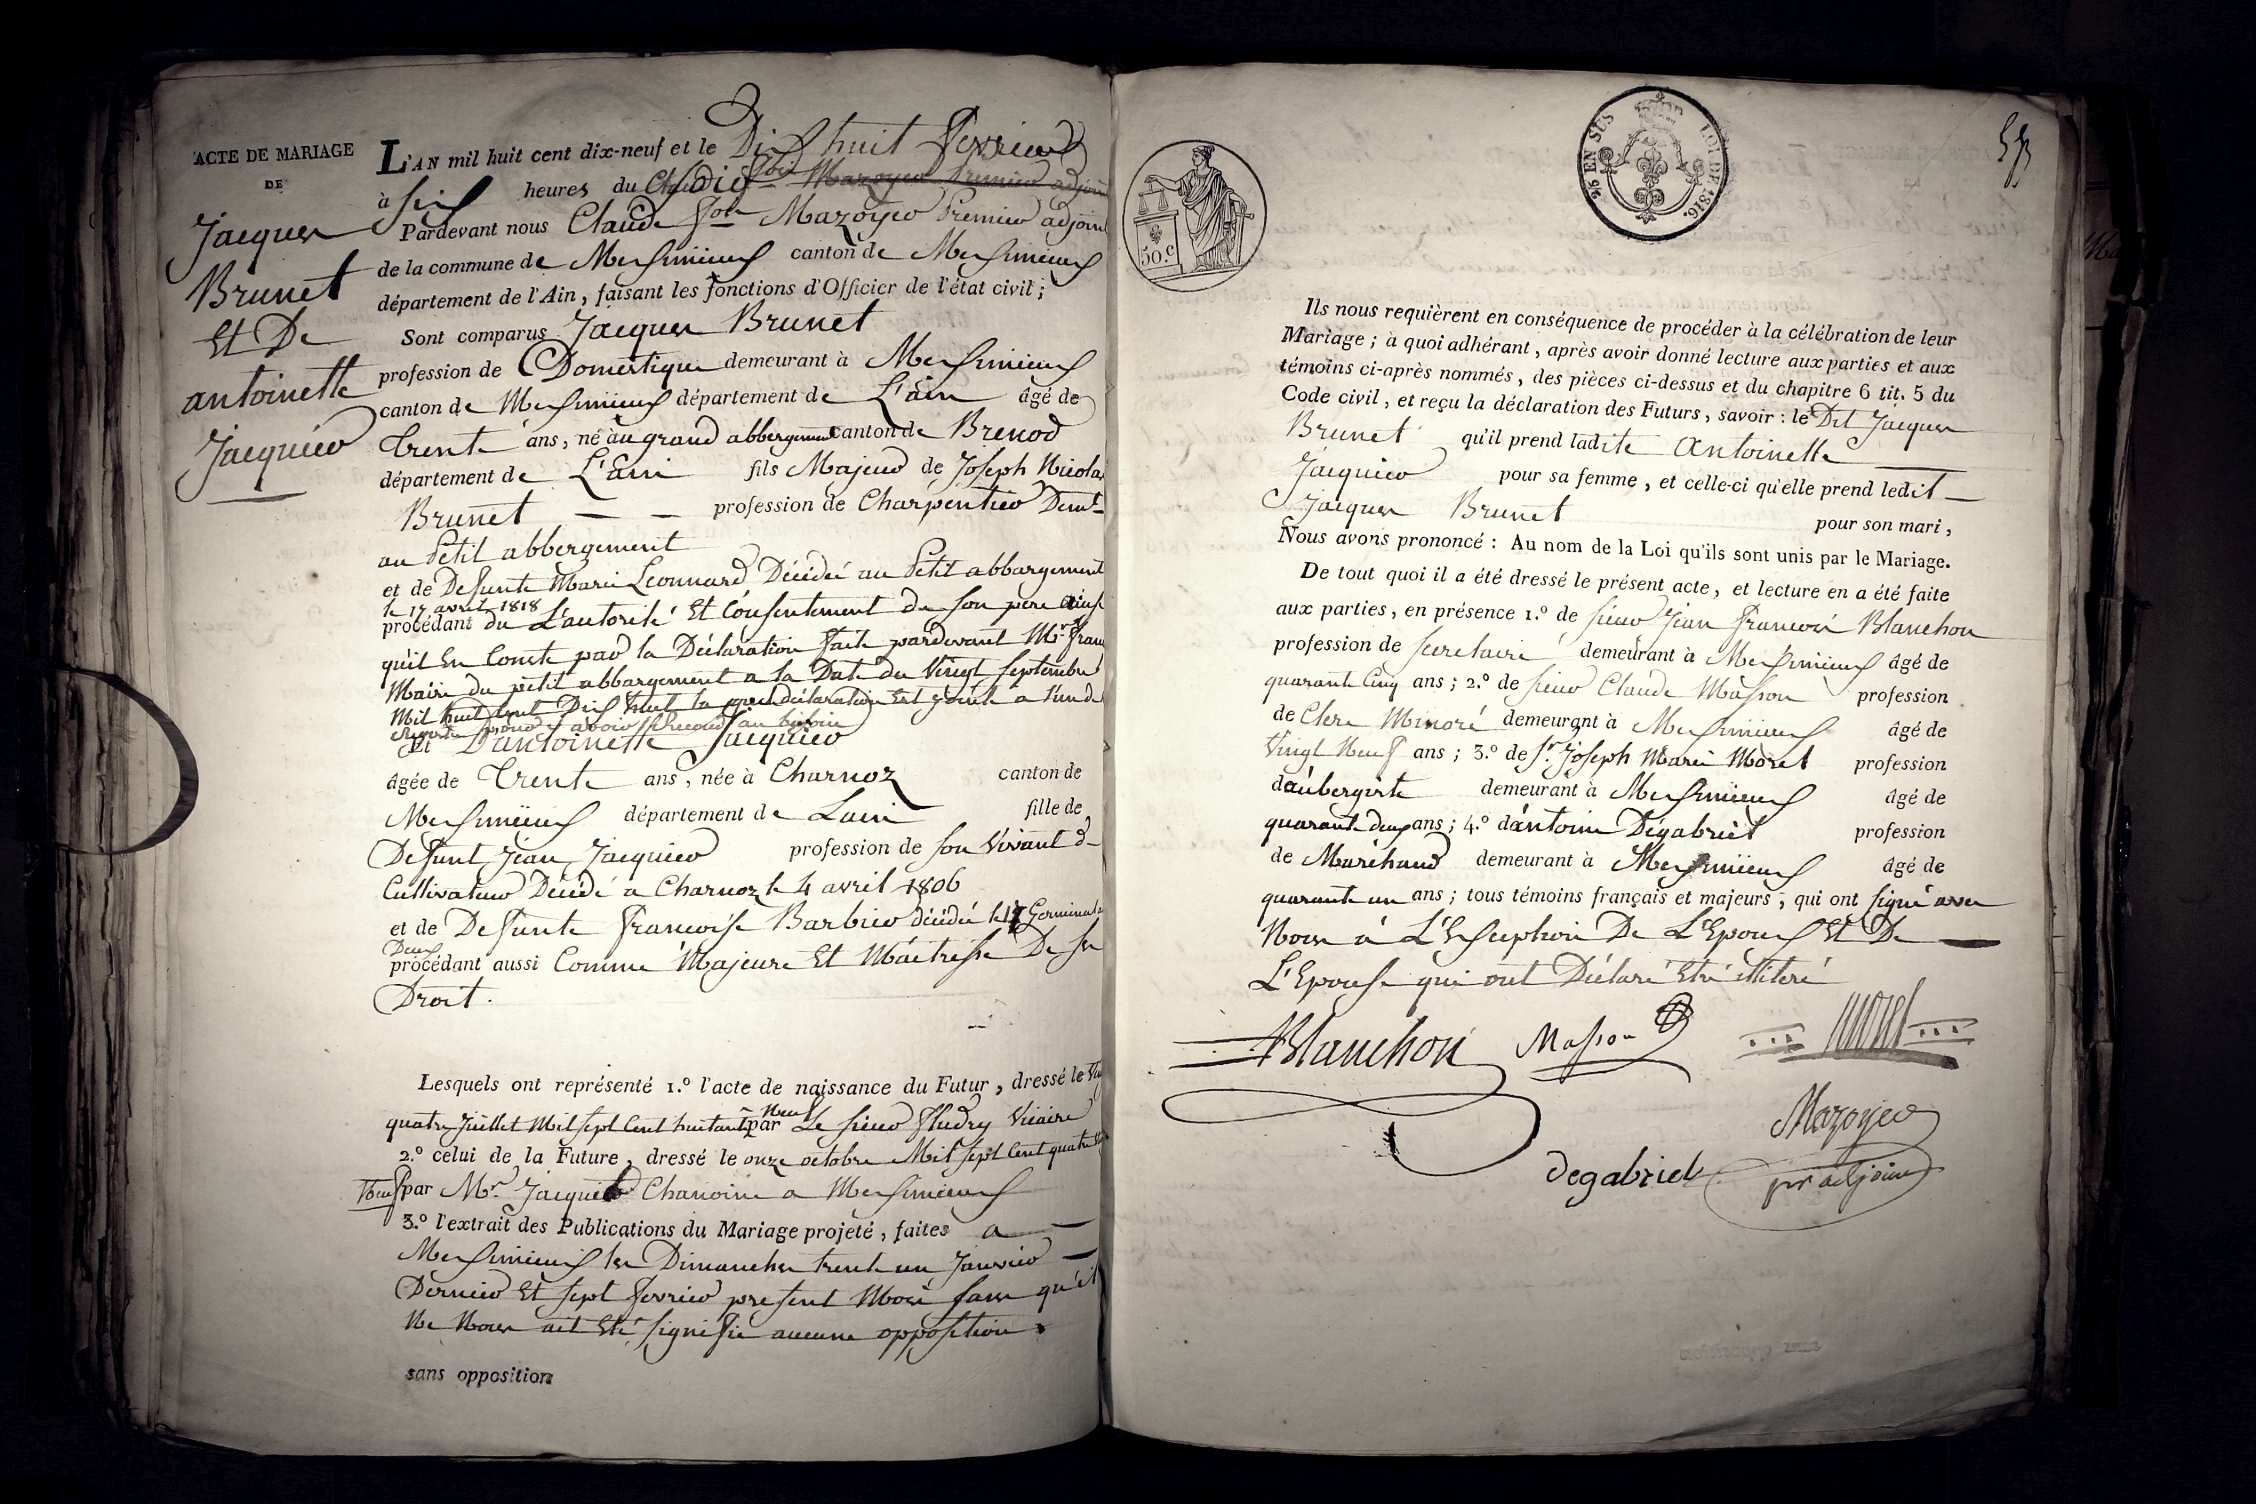 ACTE DE MARIAGE
DE
Jacques
Brunet
Et De
antoinette
Jacquier
L'AN mil huit cent dix-neuf et le Dix huit fevrier
à Six heures du Mazoyer Premier adjoint
Pardevant nous Claude Mazoyer Premier adjoint
de la commune de Meximieux canton de Meximieux
département de l'Ain, faisant les fonctions d'Officier de l'état civil;
Sont comparus Jacques Brunet
profession de Domestique demeurant à Meximieux
canton de Meximieux département de L'ain âgé de
trente ans, né au grand abbergement canton de Brenod
département de L'ain fils Majeur de Joseph Nicolas
Brunet — — profession de Charpentier Demt
au Petit abbergement
et de Defunte Marie Leonnard Décédée au Petit abbargement
le 17 avril 1818
procédant de L'autorité Et Consentement de son pere ainsi
qu'il En Conste par la Déclaration faite pardevant Mr
Maire du petit abbargement a la Date du Vingt Septembre
Mil huit Cent Dix huit la quelle déclaration Est jointe a l'un de
Et D'antoinette Jacquier
âgée de Trente ans, née à Charnoz canton de
Meximieux département de Lain fille de
Defunt Jean Jacquier profession de son Vivant
Cultivateur Décédé a Charnoz le 4 avril 1806
et de Defunte francoise Barbier décédée le Germinal
Deux
procédant aussi Comme Majeure Et Maitresse De ses
Droit.
Lesquels ont représenté 1.º l'acte de naissance du Futur, dressé le
Neuf
quatre Juillet Mil sept Cent huitante par Le sieur Vicaire
2.º celui de la Future, dressé le onze octobre Mil sept Cent quatre
Neuf par Mr. Jacquier Chanoine a Meximieux
3.º l'extrait des Publications du Mariage projeté, faites a —
Meximieux les Dimanches trente un Janvier —
Dernier Et sept fevrier present Mois sans qu'il
Ne Nous ait Eté signifié aucune opposition
sans opposition
50.c
25 EN SUS
LOI DE 1816.
Ils nous requièrent en conséquence de procéder à la célébration de leur
Mariage; à quoi adhérant, après avoir donné lecture aux parties et aux
témoins ci-après nommés, des pièces ci-dessus et du chapitre 6 tit. 5 du
Code civil, et reçu la déclaration des Futurs, savoir: le Dit Jacques
Brunet qu'il prend ladite Antoinette
Jacquier pour sa femme, et celle-ci qu'elle prend ledit —
Jacques Brunet pour son mari,
Nous avons prononcé: Au nom de la Loi qu'ils sont unis par le Mariage.
De tout quoi il a été dressé le présent acte, et lecture en a été faite
aux parties, en présence 1.º de sieur Jean Francois Blanchon
profession de secretaire demeurant à Meximieux âgé de
quarante Cinq ans; 2.º de sieur Claude Masson profession
de Clerc Minoré demeurant à Meximieux âgé de
Vingt Neuf ans; 3.º de Sr. Joseph Marie Morel profession
d'aubergiste demeurant à Meximieux âgé de
quarante deux ans; 4.º d'antoine Dégabriel profession
de Maréchand demeurant à Meximieux âgé de
quarante un ans; tous témoins français et majeurs, qui ont signé avec
Nous à L'Exception De L'Epoux Et De —
L'Epouse qui ont Déclaré Etre illiteré
Blanchon Masson Morel
Mazoyer
degabriel pr adjoint